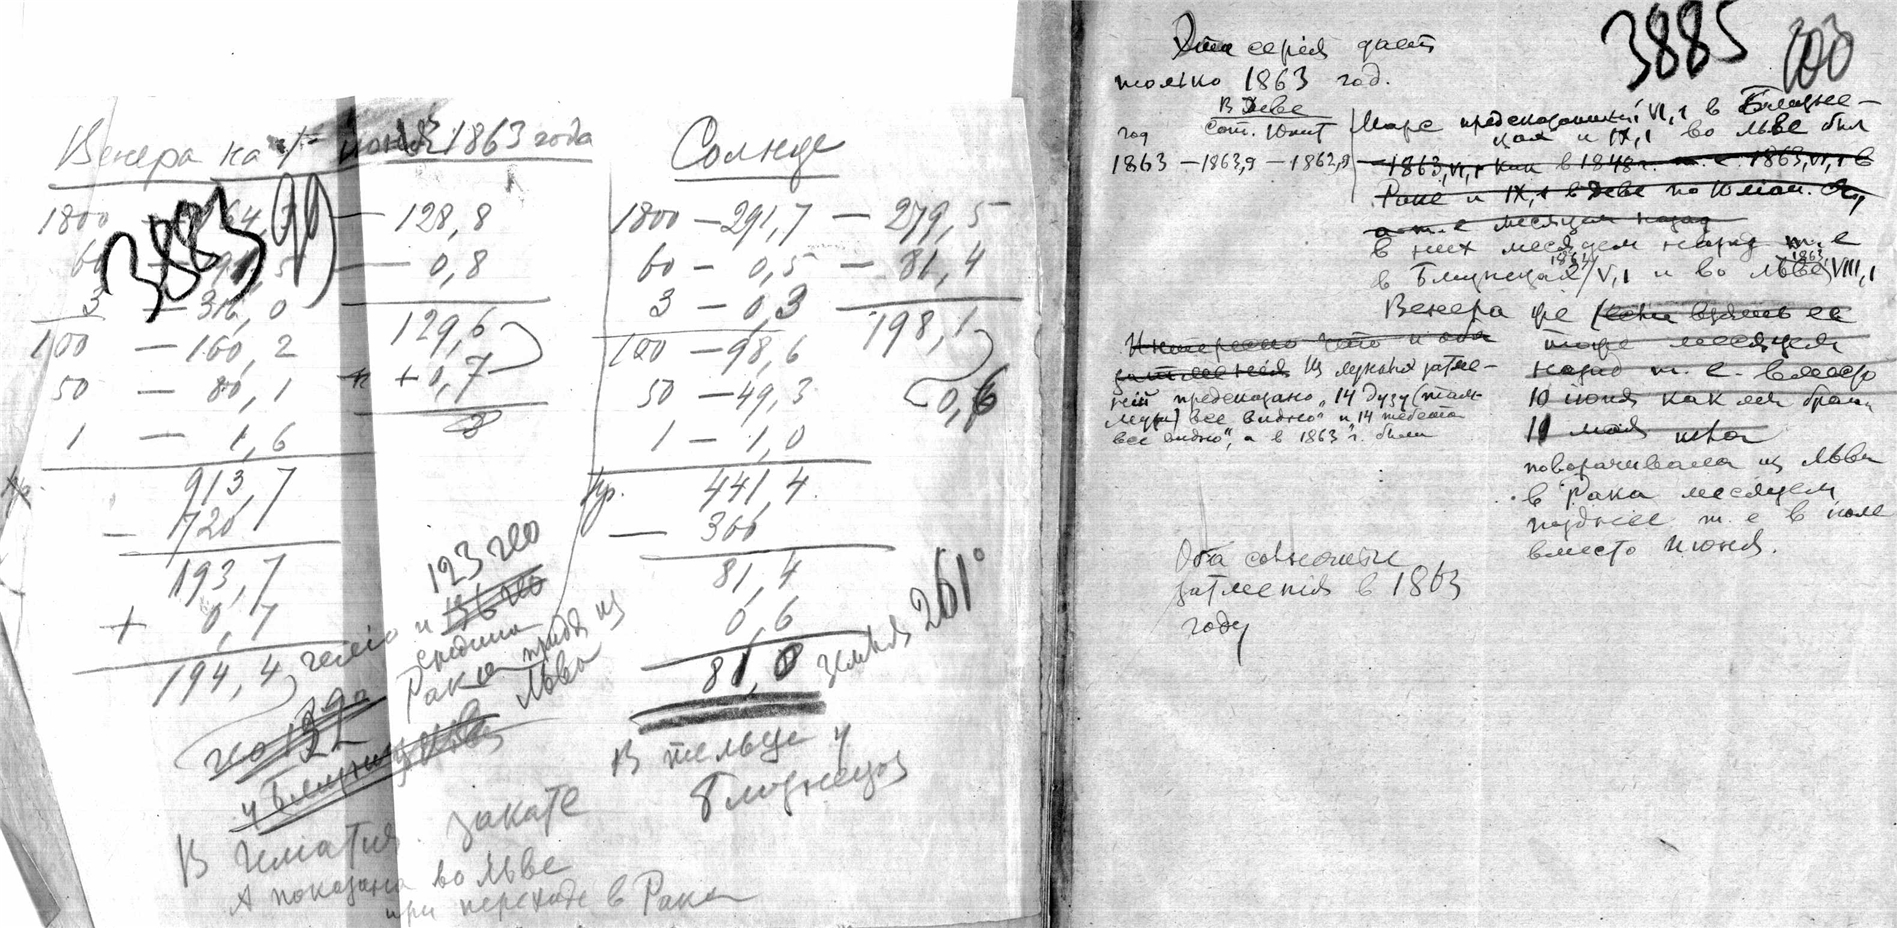 Венера на 1 июня 1863 года
3883
1800 — 128,8
60 — 0,8
3 — 316,0
129,6
100 — 160,2
+ 0,7
50 — 80,1
1 — 1,6
913,7
— 720
193,7
+ 0,7
194,4 гелио и
123 гео
средина
Рака придя из
Льва
В закате
А показана во Льве
при переходе в Рака
Солнце
1800 — 291,7 — 279,5
60 — 0,5 — 81,4
3 — 0,3
198,1
100 — 98,6
50 — 49,3
0,6
1 — 1,0
441,4
— 360
81,4
0,6
81,0 земля 261°
В тельце и
Близнецах
3885
Эта серия дает
только 1863 год.
В Деве
год Сат. Юпит
1863 — 1863,9 — 1862,9
Марс предсказанный VI,1 в Близне-
цах и IX,1 во Льве был
1863,VI,1 как в 1848 г. т. е. 1863,VI,1 в
Раке и IX,1 в Деве по Юлиан.
а т. е. месяцем назад
в них месяцем назад т. е
в Близнецах 1863 V,1 и во Льве 1863, VIII,1
Венера же
тоже месяцем
назад т. е. вместо
10 июня как мы брали
11 мая
поворачивала из Льва
в Рака месяцем
позднее т. е в июле
вместо июня.
Интересно что и оба
затмения Из лунных затме-
ний предсказано "14 дузу
все видно" и "14 тебета
все видно", а в 1863 г. были
Оба солнечн
затмения в 1863
году